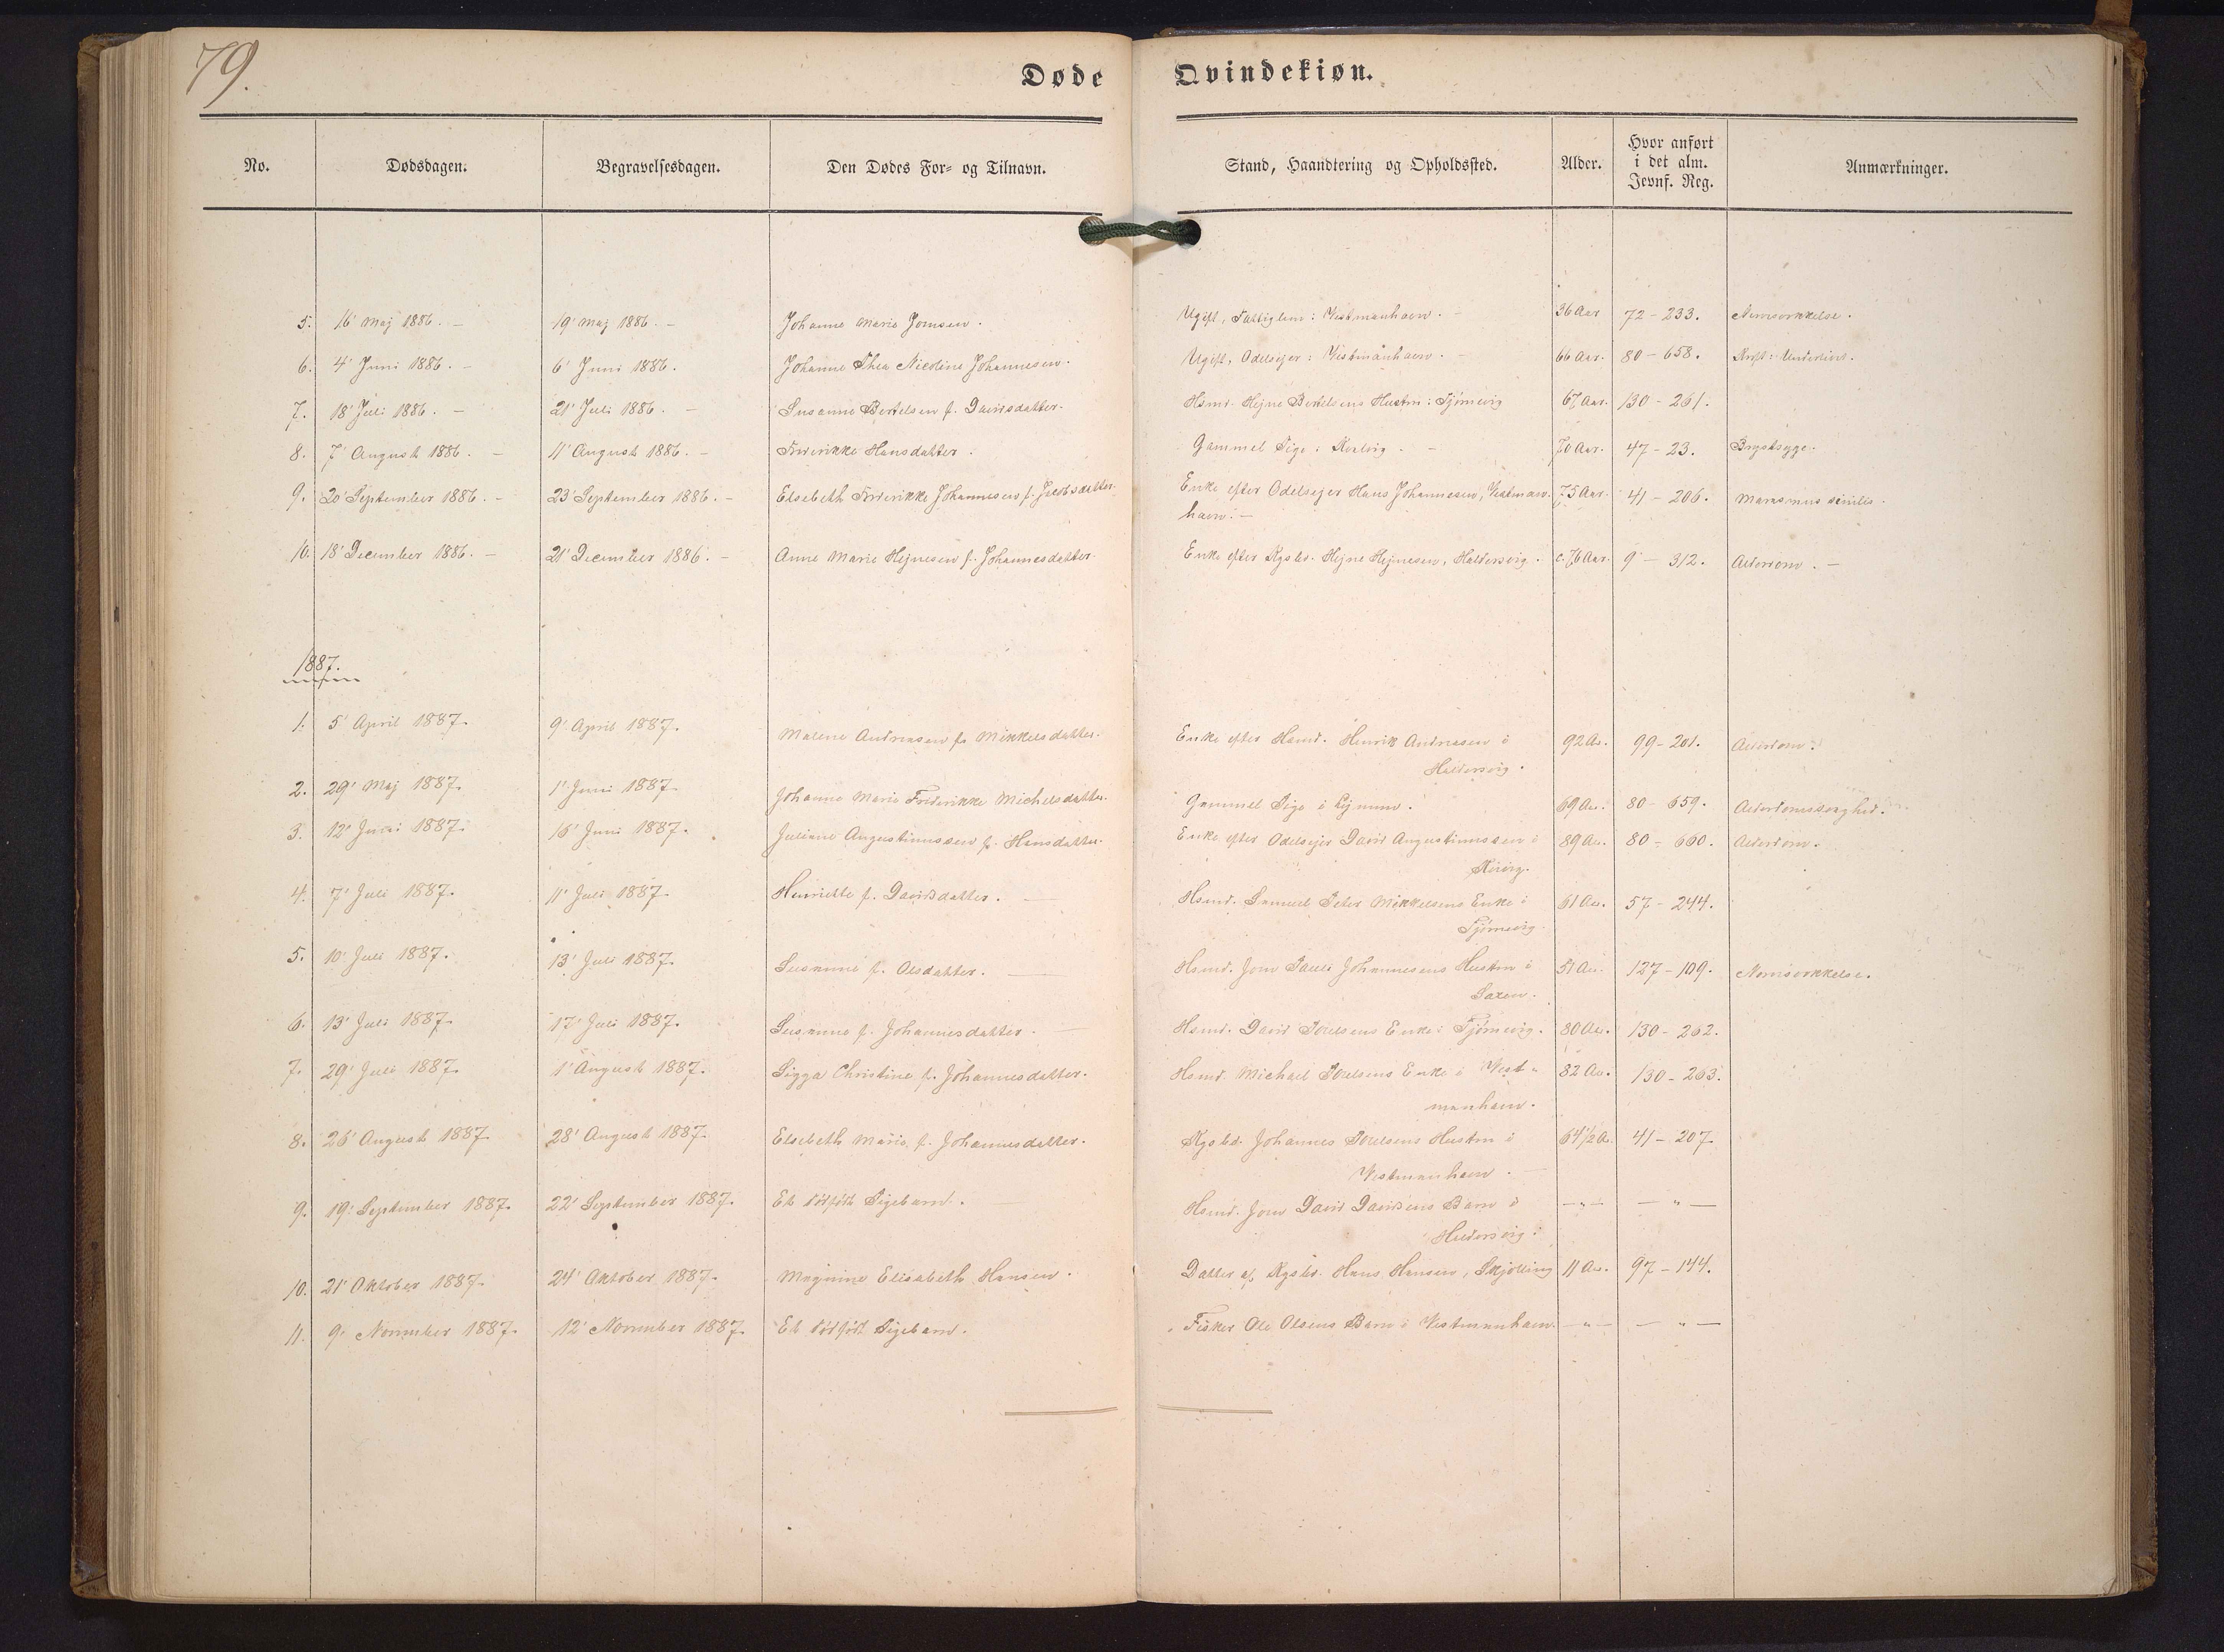 79.
Døde Qvindekiøn.
No. Dødsdagen. Begravelsesdagen. Den Dødes For- og Tilnavn. Stand, Haandtering og Opholdssted. Alder. Hvor anført i det alm. Jevnf. Reg. Anmærkninger.
5. 16' Maj 1886. – 19' Maj 1886. – Johanne Marie Joensen. Ugift, Fattiglem i Vestmanhavn. – 36 Aar 72 – 233. Nervesvækkelse.
6. 4' Juni 1886. – 6' Juni 1886. Johanne Thea Nicoline Johannesen. Ugift, Odelsejer i Vestmanhavn. – 66 Aar. 80 – 658. Kræft i Underlivet.
7. 18' Juli 1886. – 21' Juli 1886. – Susanne Bertelsen f. Davidsdatter. Hsmd. Hejne Bertelsens Hustru i Tjørnevig 67 Aar. 130 – 261.
8. 7' August 1886. – 11' August 1886. – Frederikke Hansdatter. Gammel Pige i Kvalvig. – 70 Aar. 47 – 23. Brystsyge.
9. 20' September 1886. – 23' September 1886. – Elsebeth Frederikke Johannesen f. Jacobsdatter. Enke efter Odelsejer Hans Johannesen, Vestman- 75 Aar. 41 – 206. Marasmus senilis.
havn. –
10. 18' December 1886. – 21' December 1886. – Anne Marie Hejnesen f. Johannesdatter. Enke efter Kgsbd. Hejne Hejnesen, Haldersvig. c. 76 Aar. 9 – 312. Alderdom. –
1887.
1. 5' April 1887. 9' April 1887. Malene Andreasen f. Mikkelsdatter. Enke efter Hsmd. Henrik Andreasen i 92 Aa. 99 – 201. Alderdom.
Haldersvig.
2. 29' Maj 1887. 1' Juni 1887. Johanne Marie Frederikke Michelsdatter. Gammel Pige i Ljimum. 69 Aa. 80 – 659. Alderdomssvaghed.
3. 12' Juni 1887. 16' Juni 1887. Juliane Augustinussen f. Hansdatter. Enke efter Odelsejer David Augustinussen i 89 Aa. 80 – 660. Alderdom.
4. 7' Juli 1887. 11' Juli 1887. Henriette f. Davidsdatter. – Hsmd. Samuel Peter Mikkelsens Enke i 61 Aa. 57 – 244.
Tjørnevig.
5. 10' Juli 1887. 13' Juli 1887. Susanne f. Olsdatter. – Hsmd. Joen Pauli Johannesens Hustru i 51 Aa. 127 – 109. Nervesvækkelse.
Saxen.
6. 13' Juli 1887. 17' Juli 1887. Susanne f. Johannesdatter. – Hsmd. David Poulsens Enke i Tjørnevig. 80 Aa. 130 – 262.
7. 29' Juli 1887. 1' August 1887. Sigga Christine f. Johannesdatter. Hsmd. Michael Poulsens Enke i Vest- 82 Aa. 130 – 263.
manhavn.
8. 26' August 1887. 28' August 1887. Elsebeth Marie, f. Johannesdatter. Kgsbd. Johannes Poulsens Hustru i 64½ A. 41 – 207.
Vestmanhavn. –
9. 19' September 1887. 22' September 1887. Et dødfødt Pigebarn. Hsmd. Joen David Davidsens Barn i – " – – " –
Haldersvig.
10. 21' Oktober 1887. 24' Oktober 1887. Magnine Elisabeth Hansen. Datter af Kgsbd. Hans Hansen, Skjælling 11 Aa. 97 – 144.
11. 9' November 1887. 12' November 1887. Et dødfødt Pigebarn. Fisker Ole Olsens Barn i Vestmanhavn. – " – – " –